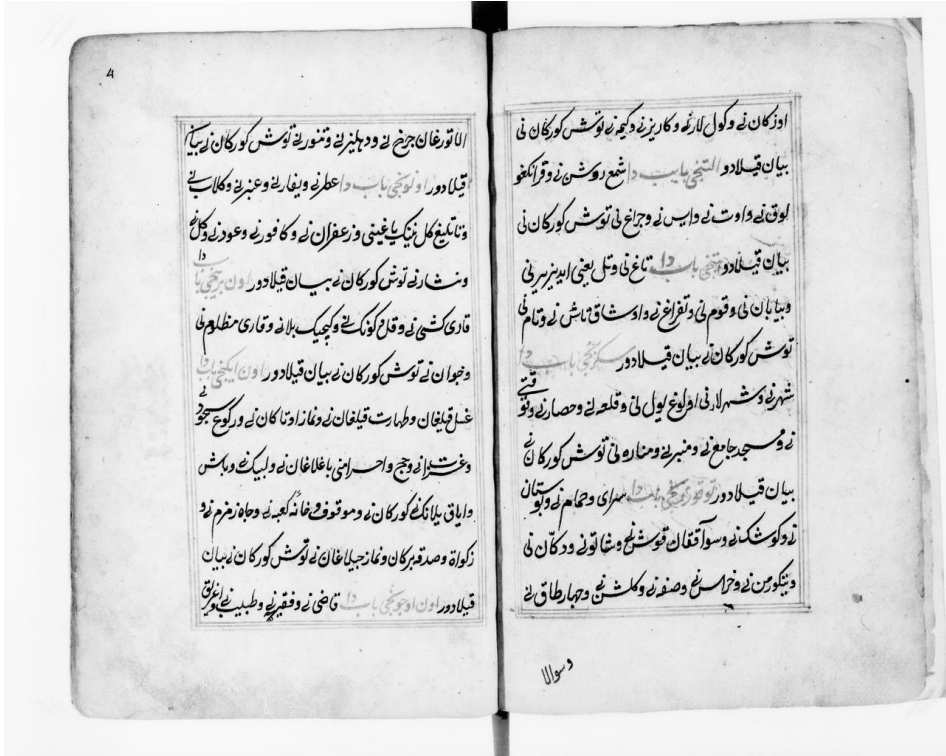 اوزکان نی و کول لارنی و کاریزنی و کیمه نی توش کورکان نی
بیان قیلادور التنجی باب دا شمع روشن نی و قرانکغو
لوق نی و اوت نی و ایس نی و چراغ نی توش کورکان نی
بیان قیلادور یتنجی باب دا تاغ نی و تل یعنی ایدیزیرنی
و بیابان نی و قوم نی و تفراغ نی و اوشاق تاش نی و تام نی
توش کورکان نی بیان قیلادور سکزنجی باب دا
شهرنی و شهرلارنی اولوغ یول نی و قلعه نی و حصارنی و
نی و مسجد جامع نی و منبرنی و مناره نی توش کورکان نی
بیان قیلادور توقوزنجی باب دا سرای و حمام نی و بوستان
نی و کوشک نی و سو آققان و شاتونی و دکان نی
و تیکورمن نی و خراس نی و صفه نی و کلشن نی و چهارطاق نی
و سوالا
4
الاتورغان چرخ نی و دهلیزنی و تنورنی توش کورکان نی بیان
قیلادور اونونجی باب دا عطرنی و یفارنی و عنبرنی و کلاب نی
و کل نینک یاغینی و زعفران نی و کافورنی و عودنی و کل نی
و نثارنی توش کورکان نی بیان قیلادور اون بیرنجی باب دا
قاری کشی نی و قل و کونک نی و کیچیک بلانی و قاری مظلوم نی
و جوان نی توش کورکان نی بیان قیلادور اون ایکنجی باب دا
غسل قیلغان و طهارت قیلغان نی و نماز اوتاکان نی و رکوع سجود نی
و غزانی و حج و احرامنی باغلاغان نی و لبیک نی و باش
و ایاق یلانک نی کورکان نی و موقوف و خانه کعبه نی و چاه زمزم نی و
زکواة و صدقه برکان و نماز جیلاغان نی توش کورکان نی بیان
قیلادور اون اوچونجی باب دا قاضی نی و فقیرنی و طبیب نی و